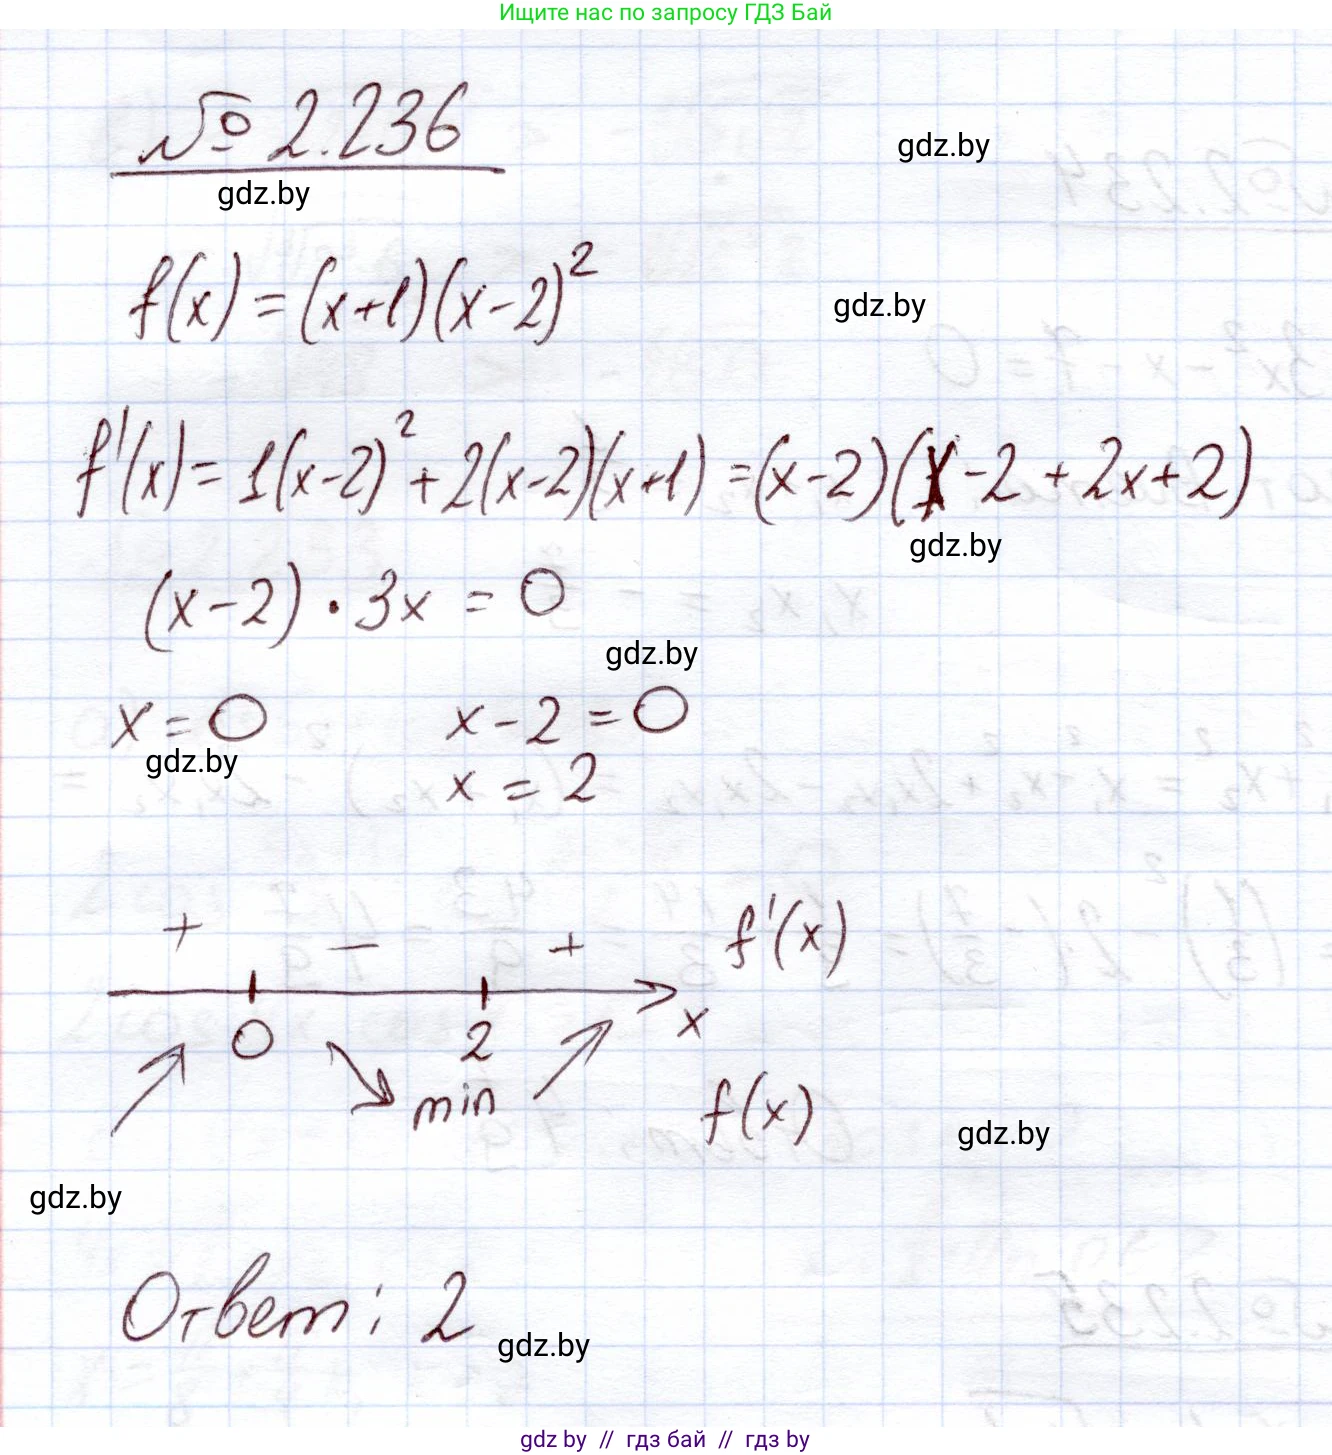 Ищите нас по запросу ГДЗ Бай
№ 2.236
gdz.by
gdz.by
f(x) = (x+1)(x-2)²
gdz.by
f'(x) = 1(x-2)² + 2(x-2)(x+1) = (x-2)(x-2+2x+2)
gdz.by
(x-2) · 3x = 0
gdz.by
x = 0 x-2 = 0
gdz.by
x = 2
+ − + f'(x)
0 2 x
min f(x)
gdz.by
gdz.by
Ответ: 2
gdz.by
gdz by // гдз бай // гдз by